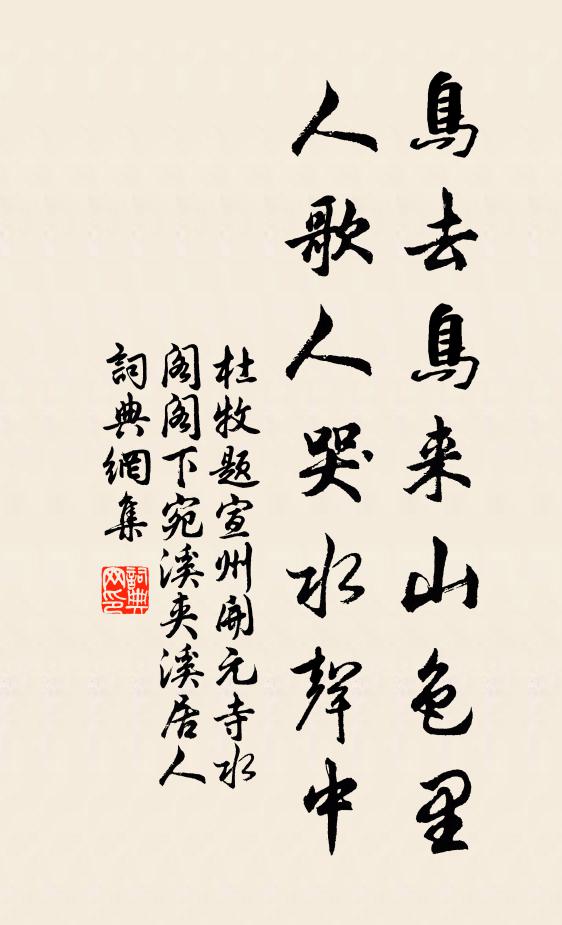 鳥去鳥来山色里
人歌人哭水聲中
杜牧题宣州開元寺水
阁阁下宛溪夹溪居人
詞典網集
詞典
网印